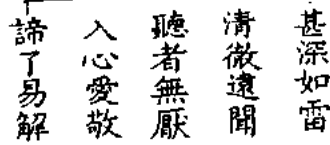 甚深如雷
清徹遠聞
聽者無厭
入心愛敬
諦了易解